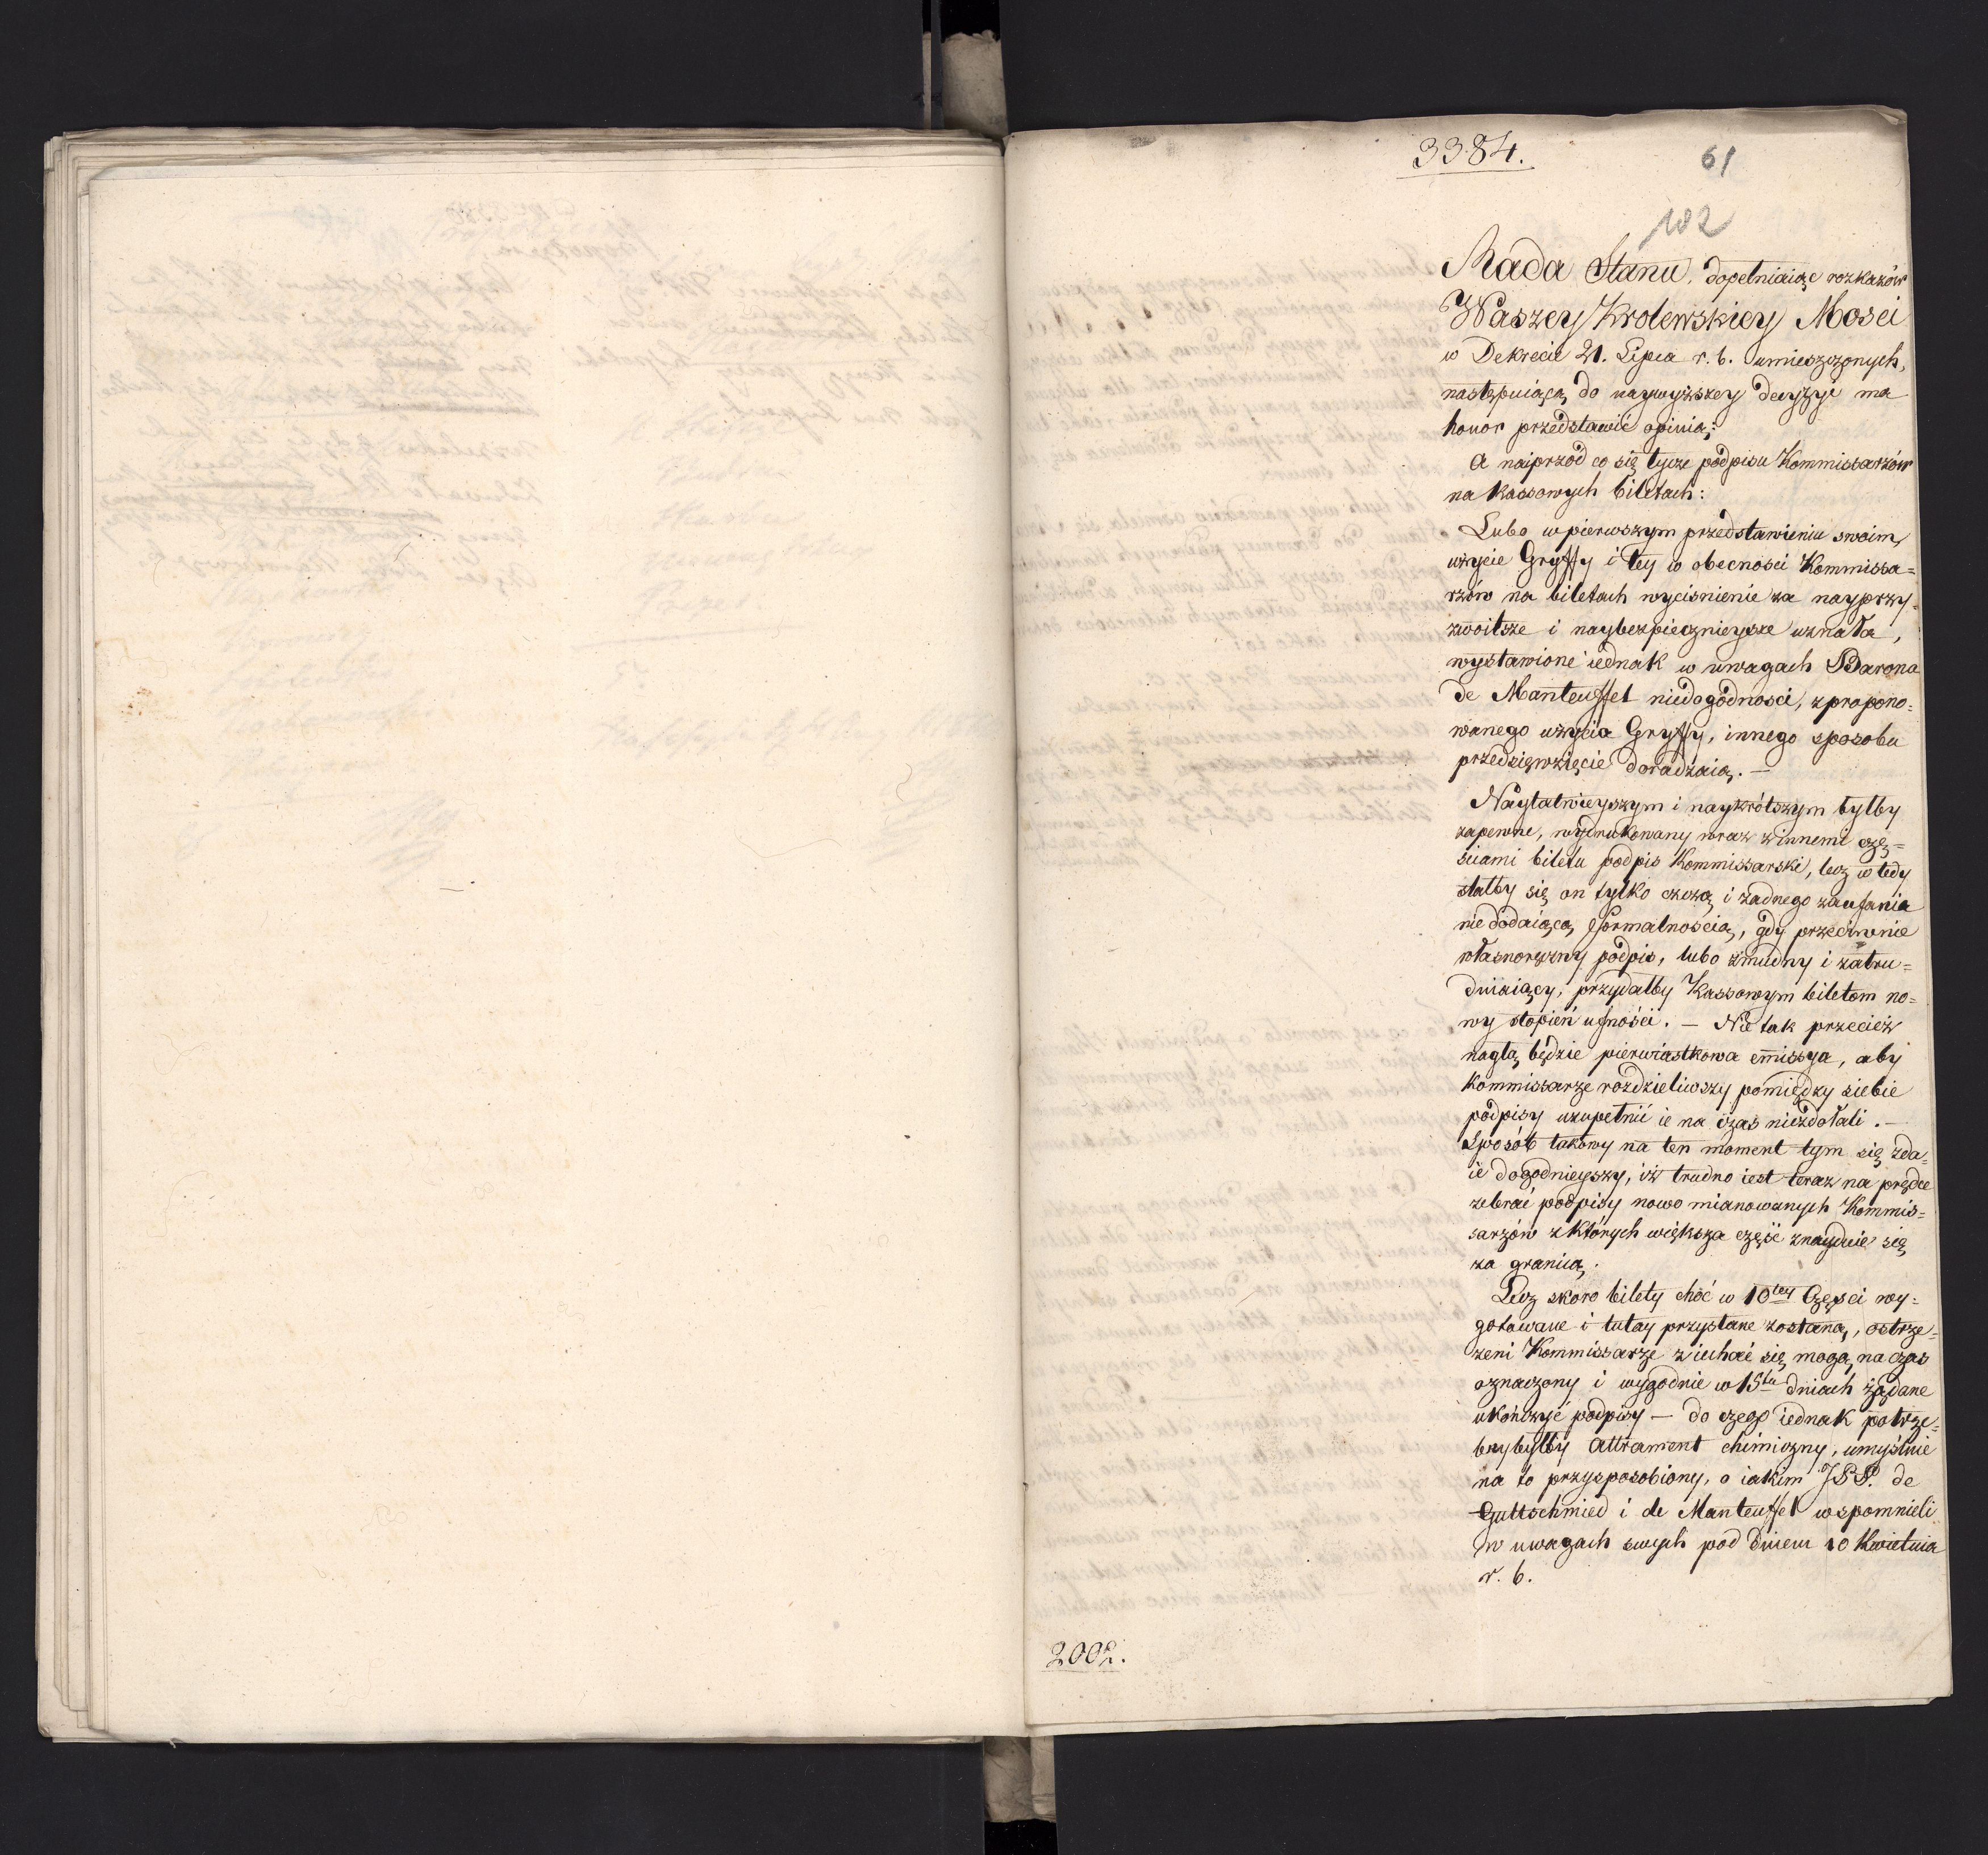 3384.
61
102
Rada Stanu, dopełniaiąc rozkazów
Waszey Krolewskiey Mosci
w Dekrecie 21. Lipca r. b. umieszczonych,
następuiącą do naywyższey decyzyi ma
honor przedstawić opinią:
A naiprzod co się tycze podpisu Kommissarzów
na Kassowych biletach:
Lubo w pierwszym przedstawieniu swoim,
użycie Gryffy i tey w obecnosci Kommissa=
rzów na biletach wycisnienie za nayprzy=
zwoitsze i naybezpiecznieysze uznała,
wystawione iednak w uwagach Barona
de Manteuffel niedogodnosci, z propono=
wanego użycia Gryffy, innego sposobu
przedsięwzięcie doradzaią. —
Nayłatwieyszym i naykrótszym byłby
zapewne, wydrukowany wraz z innemi czę=
sciami biletu podpis Kommissarski, lecz w tedy
stałby się on tylko czczą i żadnego zaufania
nie dodaiącą formalnoscią, gdy przeciwnie
własnoręczny podpis, lubo żmudny i zatru=
dniaiący, przydałby Kassowym biletom no=
wy stopień ufności. — Nie tak przecież
nagłą będzie pierwiastkowa emissya, aby
Kommissarze rozdzieliwszy pomiędzy siebie
podpisy uzupełnić ie na czas niezdołali. —
Sposób takowy na ten moment tym się zda=
ie dogodnieyszy, iż trudno iest teraz na prędce
zebrać podpisy nowo mianowanych Kommis=
sarzów z których większa część znayduie się
za granicą.
Lecz skoro bilety choć w 10tey Częsci wy=
gotowane i tutay przysłane zostaną, ostrze=
żeni Kommissarze ziechać się mogą na czas
oznaczony i wygodnie w 15tu dniach żądane
ukończyć podpisy — do czego iednak potrze=
bny byłby attrament chimiczny, umyślnie
na to przysposobiony, o iakim JPP. de
Guttschmied i de Manteuffel wspomnieli
w uwagach swych pod dniem 10 Kwietnia
r. b.
2002.